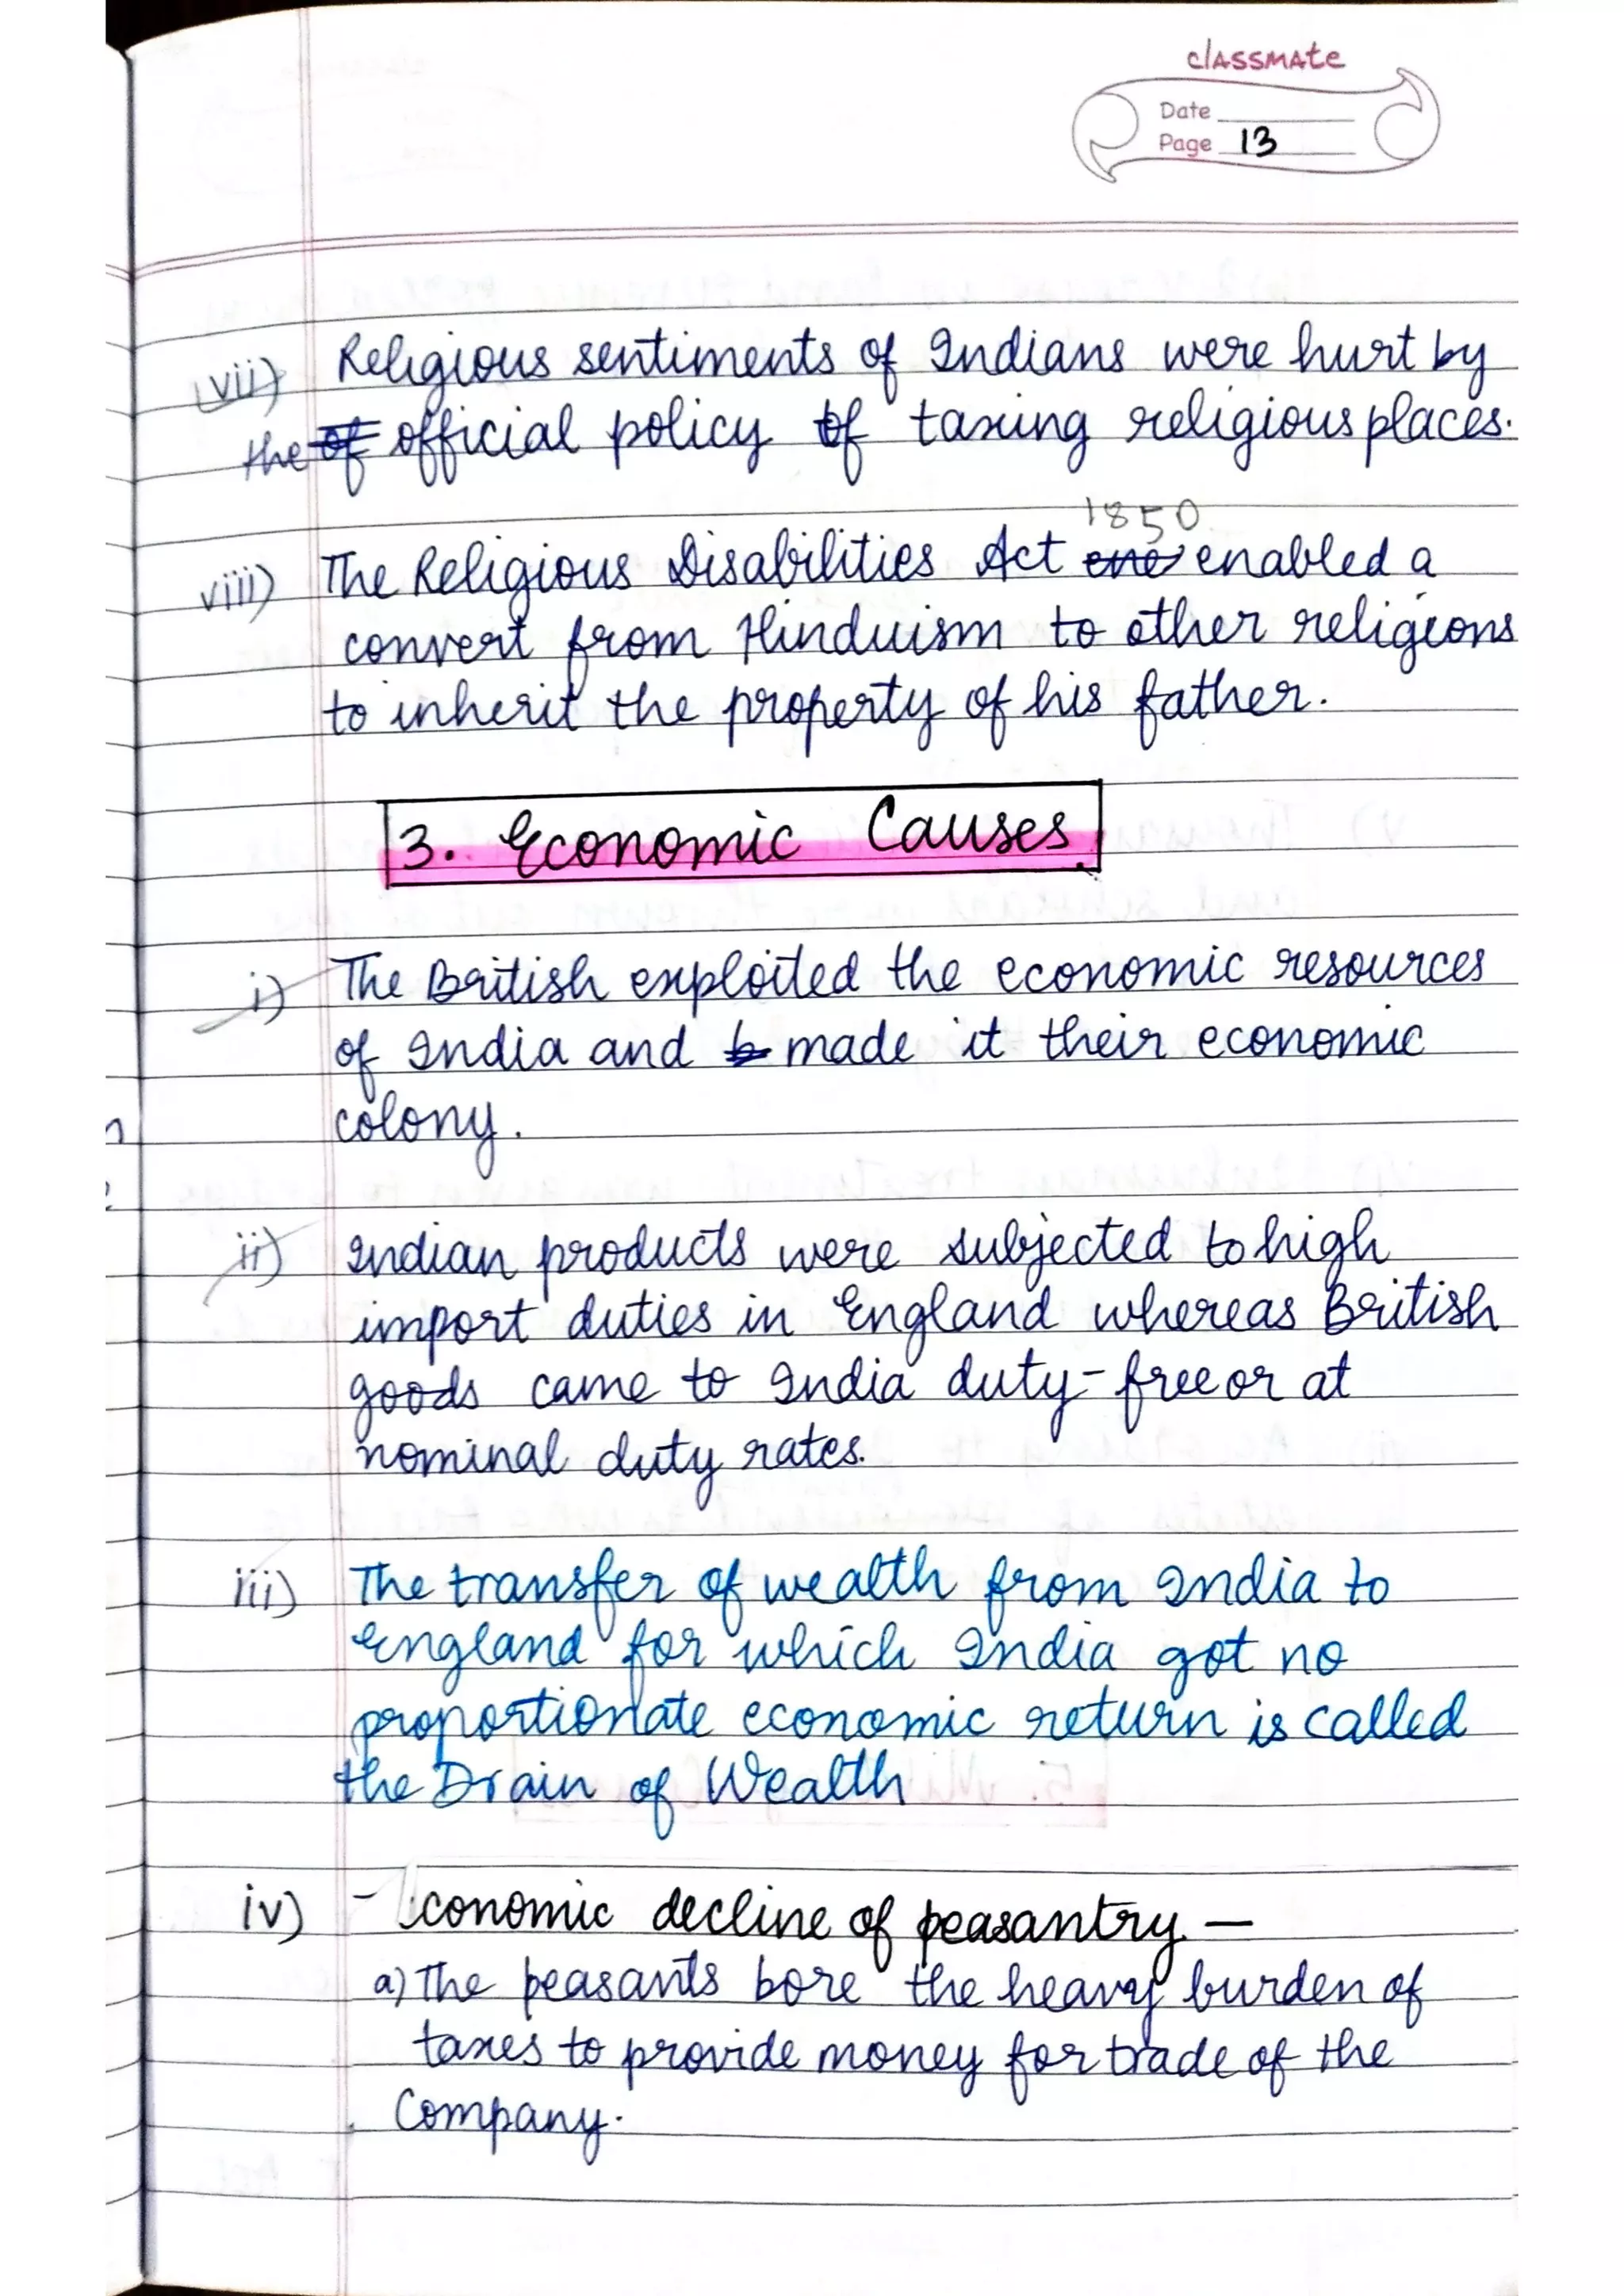 classmate
Date
Page 13
vii) Religious sentiments of Indians were hurt by
the official policy of taxing religious places.
1850
viii) The Religious Disabilities Act enabled a
convert from Hinduism to other religions
to inherit the property of his father.
3. Economic Causes
i) The British exploited the economic resources
of India and made it their economic
colony.
ii) Indian products were subjected to high
import duties in England whereas British
goods came to India duty-free or at
nominal duty rates.
iii) The transfer of wealth from India to
England for which India got no
proportionate economic return is called
the Drain of Wealth
iv) - Economic decline of peasantry —
a) The peasants bore the heavy burden of
taxes to provide money for trade of the
Company.